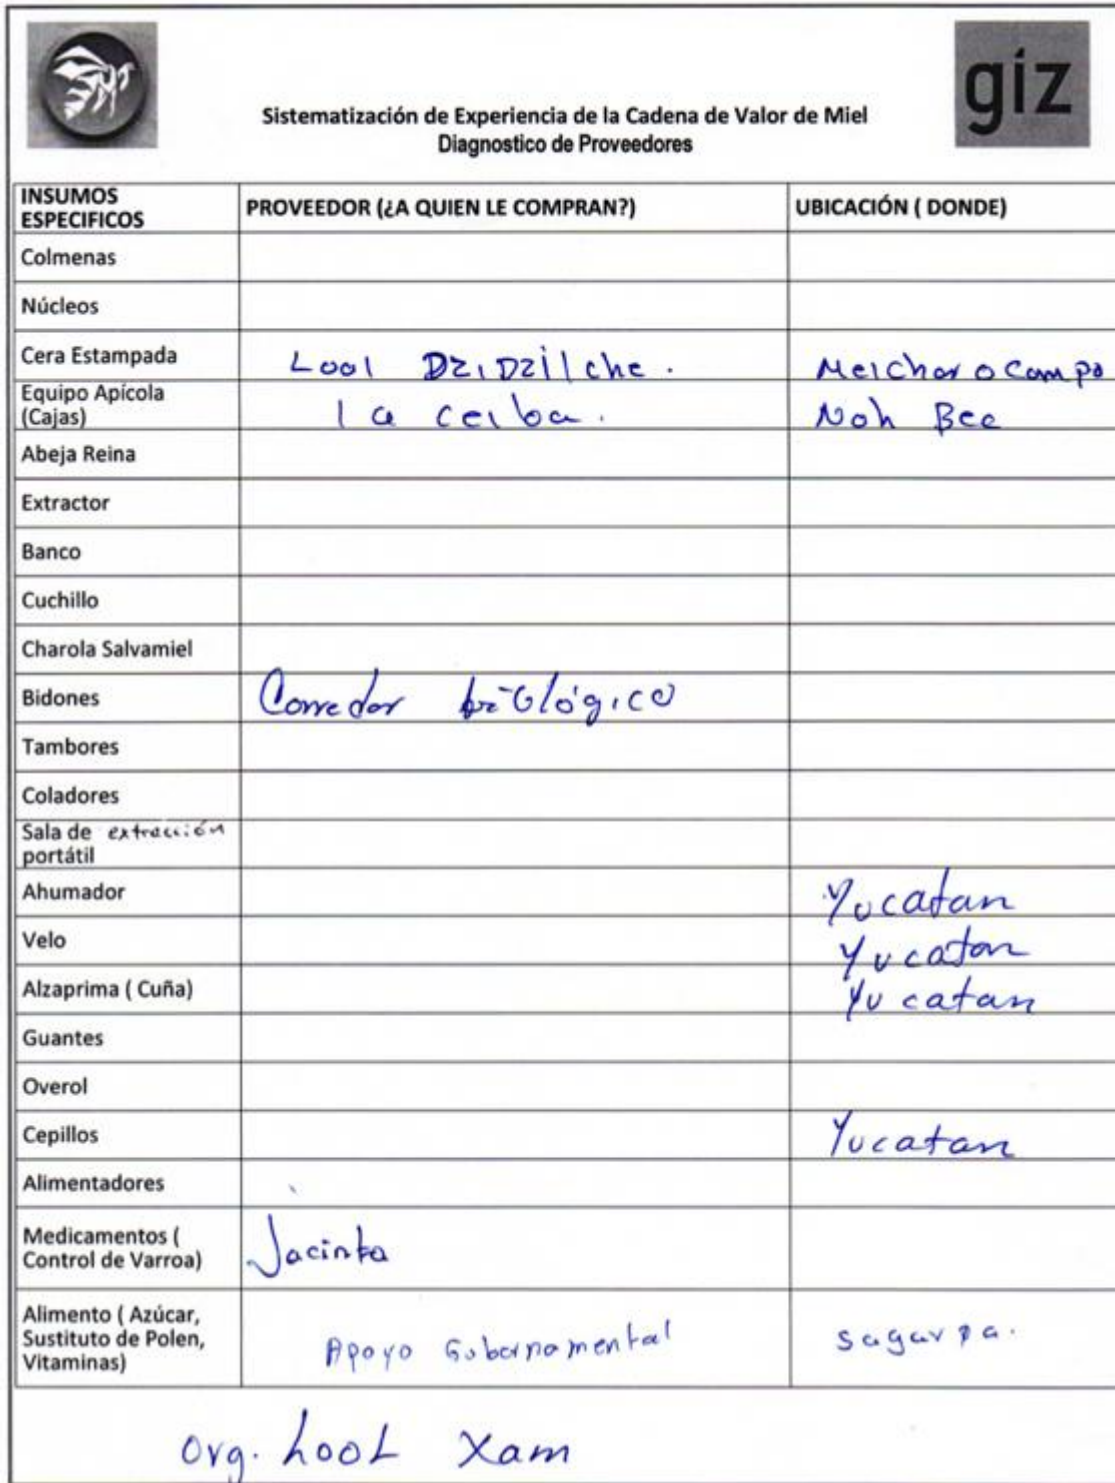 giz
Sistematización de Experiencia de la Cadena de Valor de Miel
Diagnostico de Proveedores
INSUMOS ESPECIFICOS PROVEEDOR (¿A QUIEN LE COMPRAN?) UBICACIÓN ( DONDE)
Colmenas
Núcleos
Cera Estampada Lool Dzidzilche. Melchor ocampo
Equipo Apícola
(Cajas) la ceiba. Noh Bec
Abeja Reina
Extractor
Banco
Cuchillo
Charola Salvamiel
Bidones Corredor biológico
Tambores
Coladores
Sala de extracción
portátil
Ahumador Yucatan
Velo Yucatan
Alzaprima ( Cuña) Yucatan
Guantes
Overol
Cepillos Yucatan
Alimentadores
Medicamentos (
Control de Varroa) Jacinta
Alimento ( Azúcar,
Sustituto de Polen,
Vitaminas) Apoyo Gubernamental sagarpa.
Org. LooL Xam